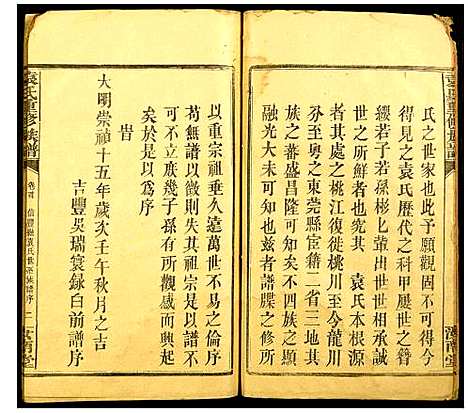 氏之世家也此予願觀固不可得今
得見之袁氏歷代之科甲歷世之簪
纓若子若孫彬匕輩出世世晉世
之所鮮者也究其　袁氏本徙何
者其處之桃江復徙桃川至今龍川
粤之東莞縣宦籍二省三地其
族之蕃盛昌隆者不四族之顯
融光大未可知也茲者譜牒之修所
以重宗祖垂久遠萬世不易之倫序
苟無譜以徵則失其祖宗是以譜不
可不立族幾子孫有所觀而興
矣於是以爲序
旹
大明崇禎十五年歲次壬午秋月之吉
吉豐吳瑞寰録白前譜序
袁氏重修族譜
卷首
信豐　袁氏世系族譜序
二
汝南堂